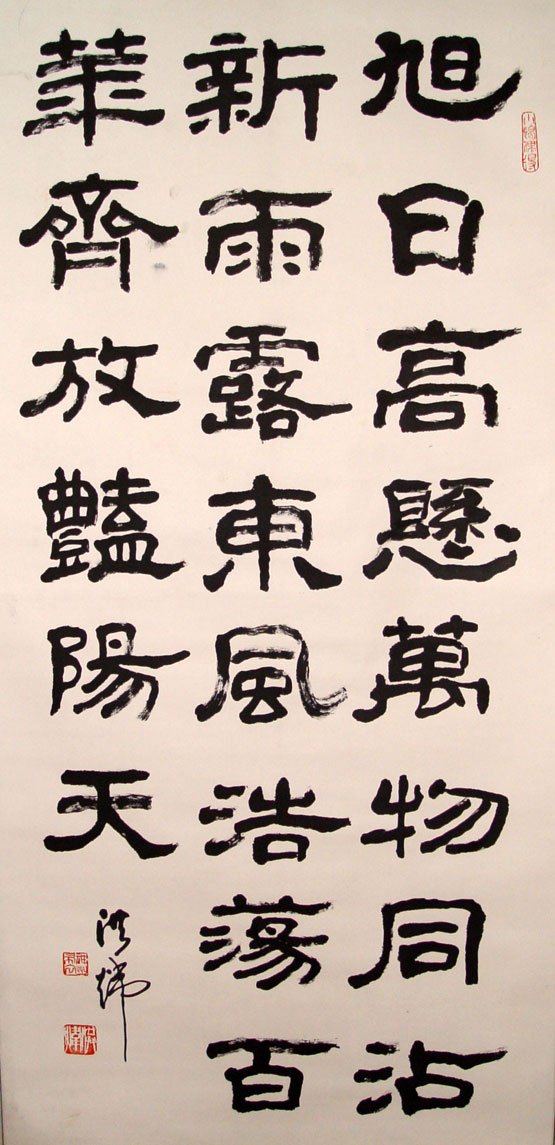 旭日高懸萬物同沾
新雨露東風浩蕩百
華齊放豔陽天